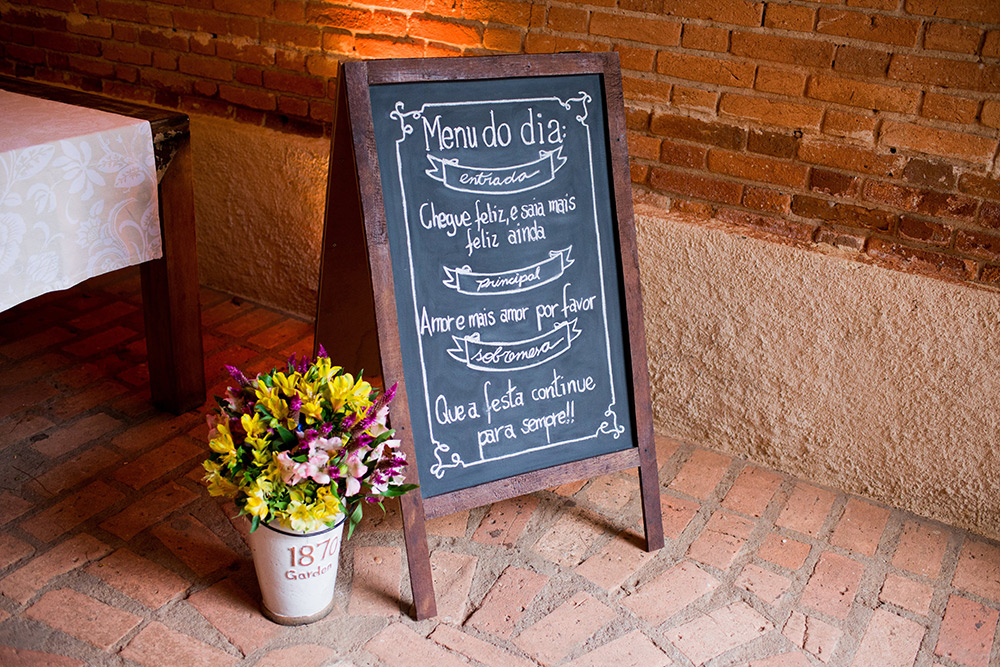 Menu do dia:
entrada
Chegue feliz, e saia mais
feliz ainda
principal
Amor e mais amor por favor
sobremesa
Que a festa continue
para sempre!!
1870
Garden